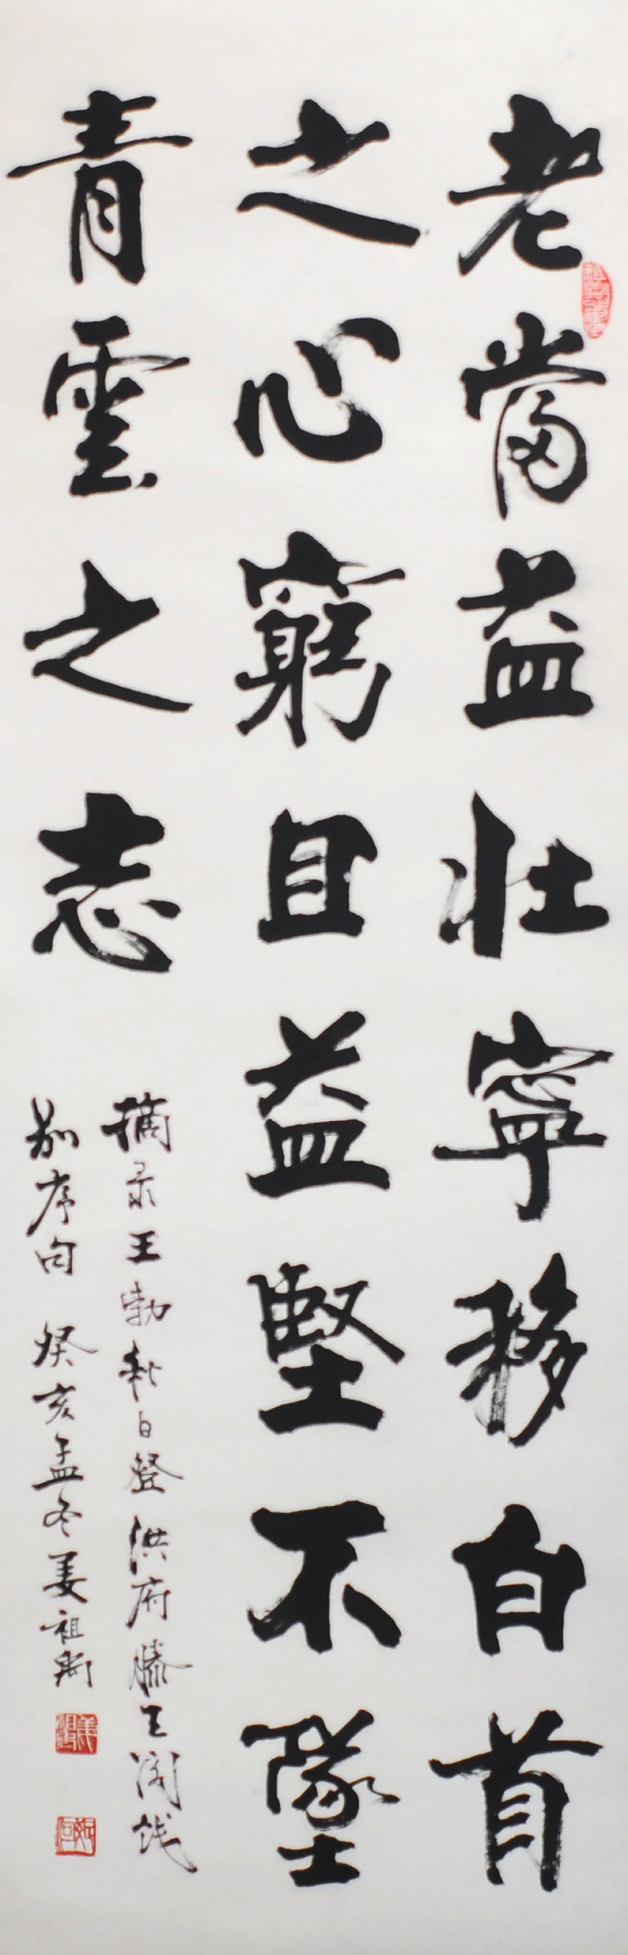 老當益壯寧移白首
之心窮且益堅不墜
青雲之志
摘录王勃秋日登洪府滕王阁饯
别序句 癸亥孟冬姜祖